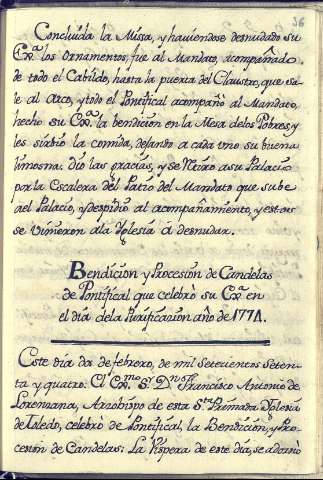 36
Concluida la Missa, y haviendose desnudado su
Exª. los Ornamentos, fue al Mandato, acompañado
de todo el Cabildo, hasta la puerta del Claustro, que sa-
le al Arco, y todo el Pontifical acompañó al Mandato,
hecho su Exª. la bendicion en la Mesa de los Pobres, y
les sirbió la comida, dejando a cada uno su buena
limosna. Dió las gracias, y se Retiro a su Palacio
por la Escalera del Patio del Mandato que sube
a el Palacio, y despidio al acompañamiento, y estos
se vinieron a la Yglesia á desnudar.
Bendicion y Procesion de Candelas
de Pontifical que celebró su Exª. en
el dia de la Purificacion año de 1774.
Este dia dos de febrero, de mil Setecientos Seten-
ta y quatro: El Exmo. Sr. Dn. Francisco Antonio de
Lorenzana, Arzobispo de esta Sta. Primada Yglesia
de Toledo, celebró de Pontifical, la Bendicion, y Pro-
cesion de Candelas: La Vispera de este dia, se adornó